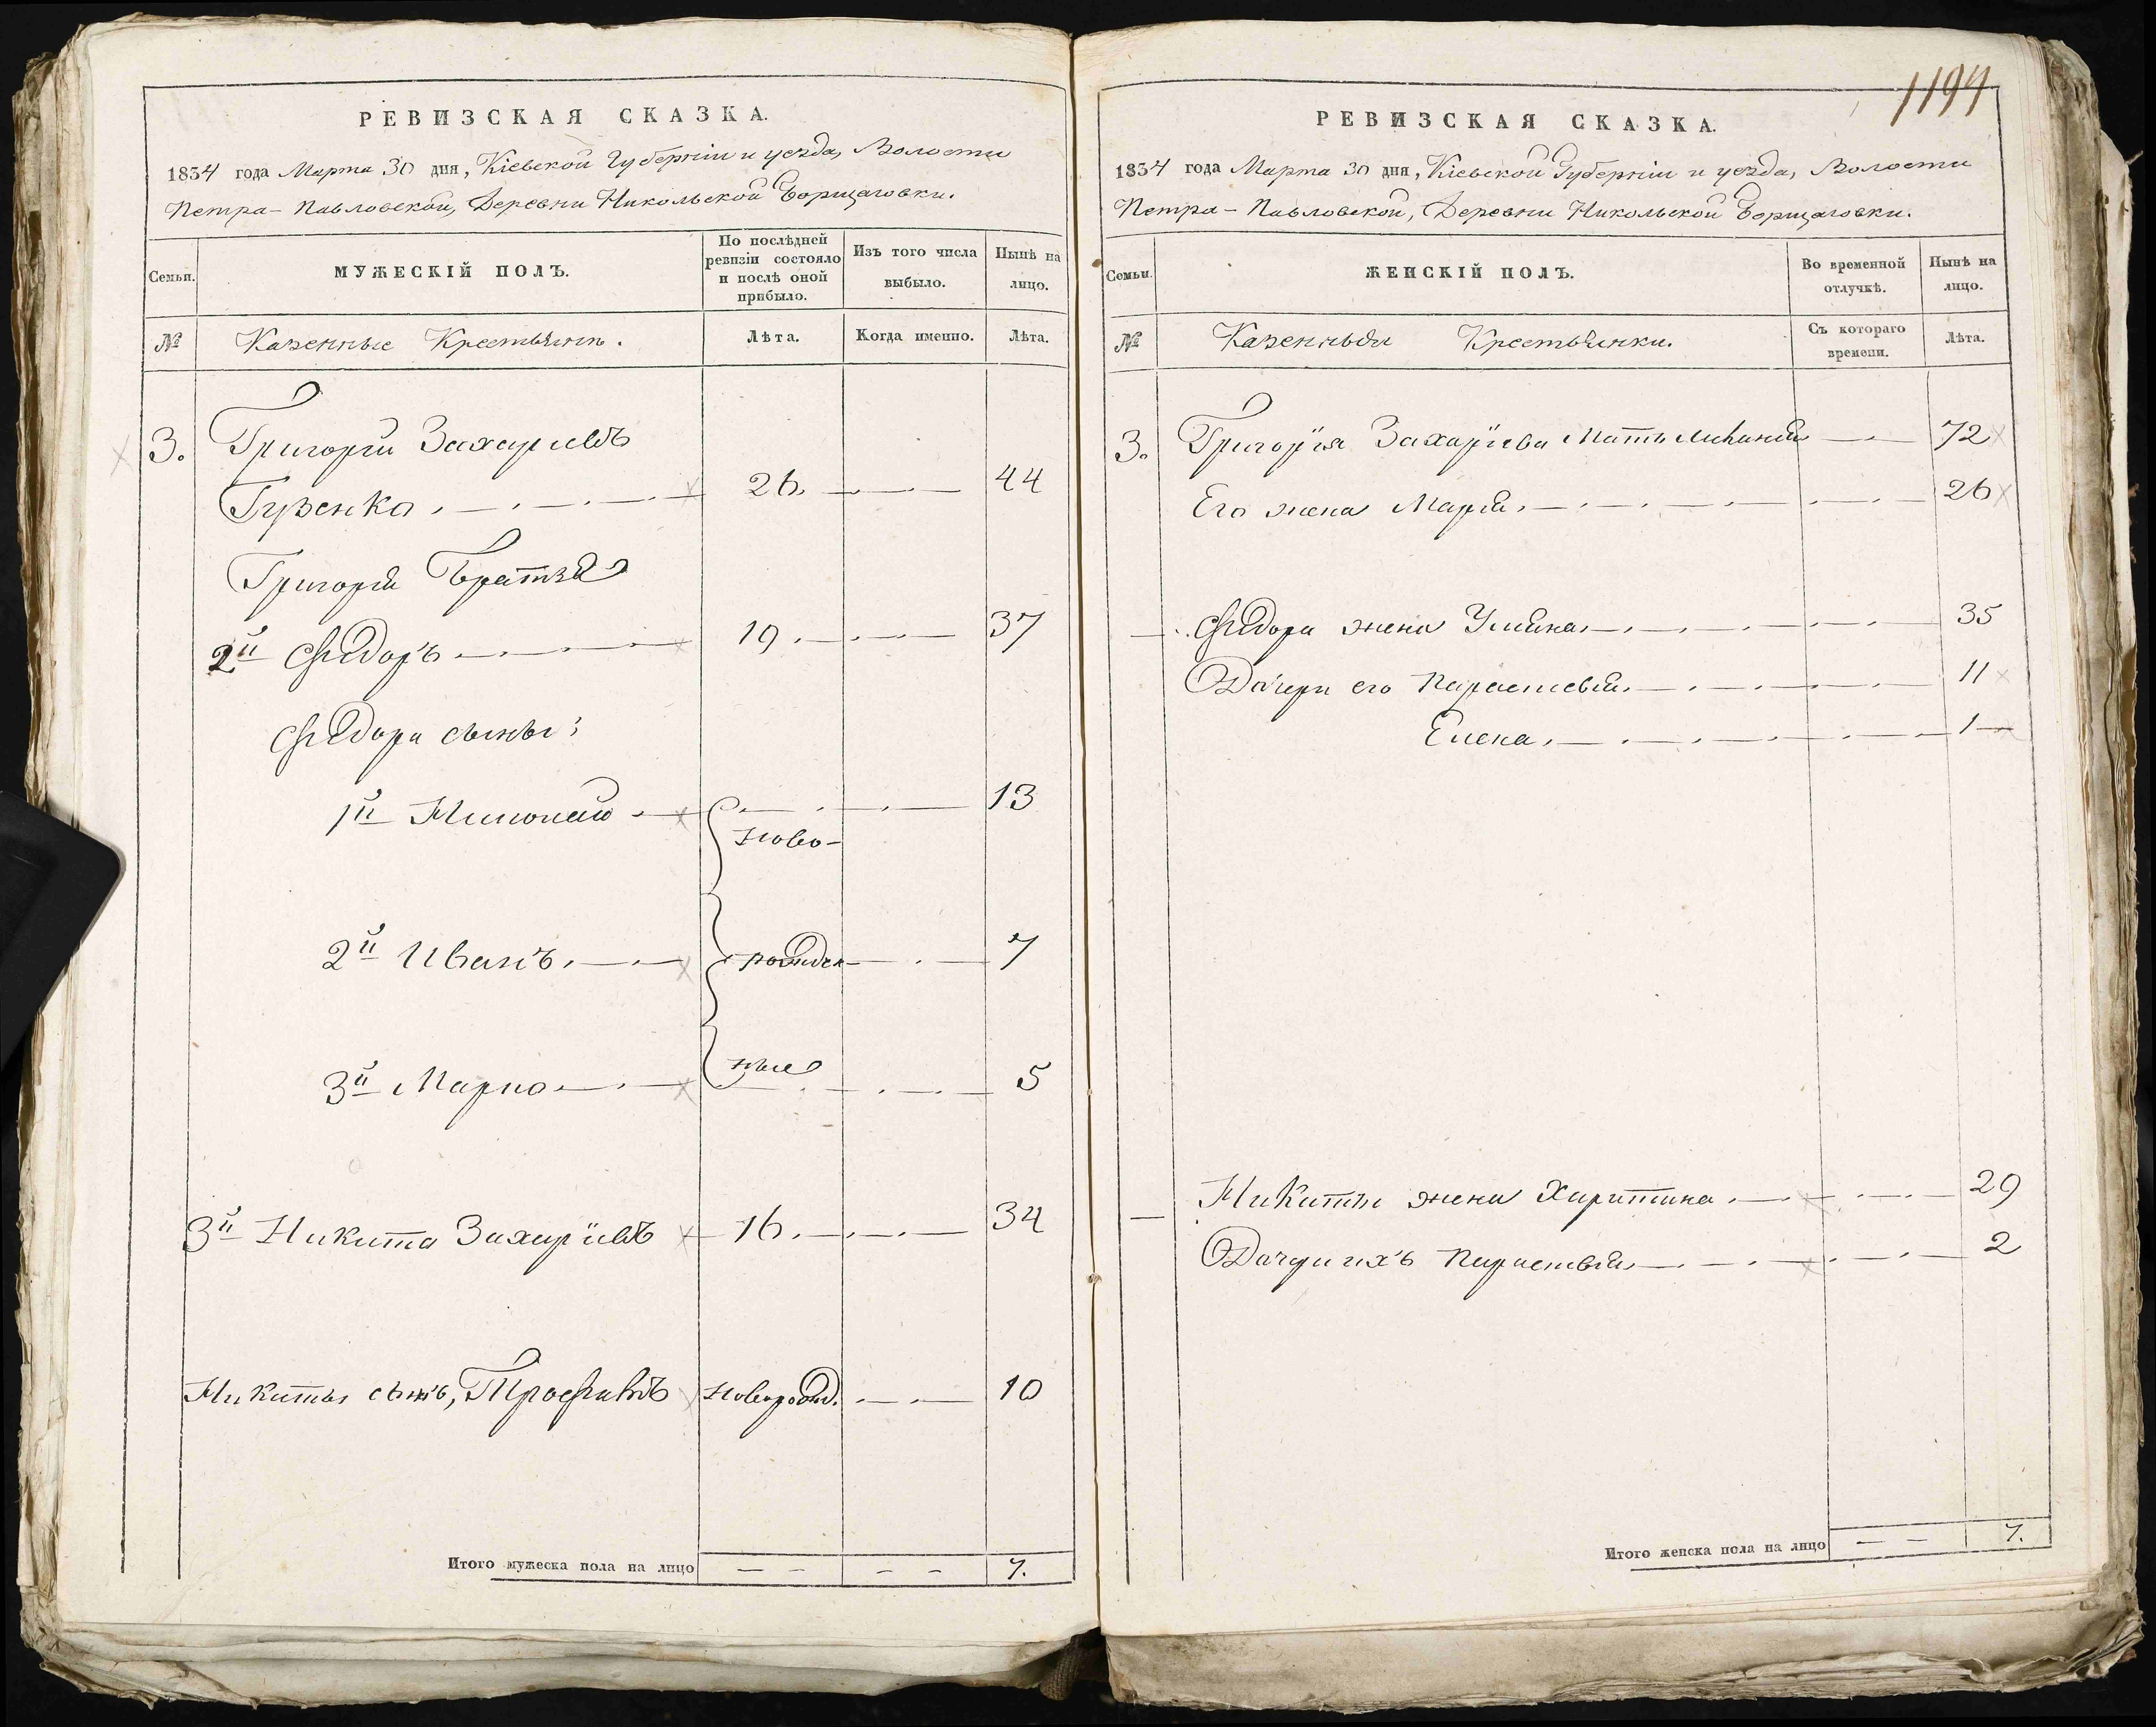 РЕВИЗСКАЯ СКАЗКА.
1854 года Марта 30 дня, Кіевской Губерніи и уезда, Волости
Петра-Павловской, Деревни Никольской Борщаговки.
Семьи.
МУЖЕСКІЙ ПОЛЪ.
По послѣдней ревизіи состояло и послѣ оной прибыло.
Изъ того числа выбыло.
Нынѣ на лицо.
№
Казенные Крестьяне.
Лѣта.
Когда именно.
Лѣта.
3. Григорій Захаріевъ
Гузенко 26. 44
Григорія Братья
2й Фёдоръ 19. 37
Фёдора сыны:
1й Николай 13
ново-
2й Иванъ. рожден 7
3й Марко ные 5
3й Никита Захаріевъ 16. 34
Никиты сынъ, Трофимъ новорожд. 10
Итого мужеска пола на лицо 7.
1194
РЕВИЗСКАЯ СКАЗКА.
1854 года Марта 30 дня, Кіевской Губерніи и уезда, Волости
Петра-Павловской, Деревни Никольской Борщаговки.
Семьи.
ЖЕНСКІЙ ПОЛЪ.
Во временной отлучкѣ.
Нынѣ на лицо.
№
Казенныя Крестьянки.
Съ котораго времени.
Лѣта.
3. Григорія Захаріева Мать 72
Его жена Марія. 26
Фёдора жена Уліяна 35
Дочери его Параскевія. 11
Елена. 1
Никиты жена Харитина. 29
Дочь ихъ Параскевія. 2
Итого женска пола на лицо 7.